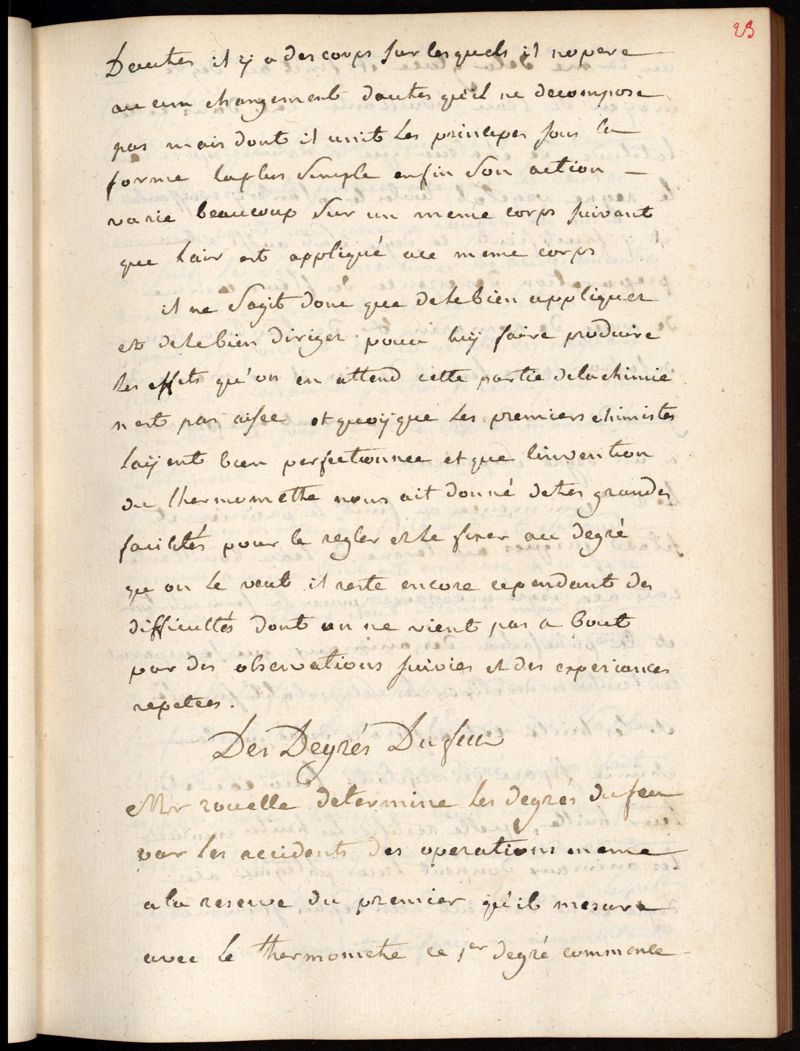 23
D'autres il y a des corps sur lesquels il nopere
aucun changement dautres qu'il ne decompose
pas mais dont il unit les principes sous la
forme la plus simple enfin son action —
varie beaucoup sur un meme corps suivant
que lair est appliqué a ce meme corps
il ne sagit donc que de le bien appliquer
et de le bien diriger pour luy faire produire
les effets qu'on en attend cette partie de la chimie
n'est pas aisée et quoyque les premiers chimistes
layent bien perfectionnee et que linvention
du thermomettre nous ait donné de tres grandes
facilités pour le regler et le fixer au degré
qu on le veut il reste encore cependant des
difficultés dont on ne vient pas a bout
par des observations suivies et des experiances
repetées.
Des Degrés Du feu
Mr rouelle determine les degrés du feu
par les accidents des operations meme
a la reserve du premier qu'il mesure
avec le thermometre ce 1er degré commence